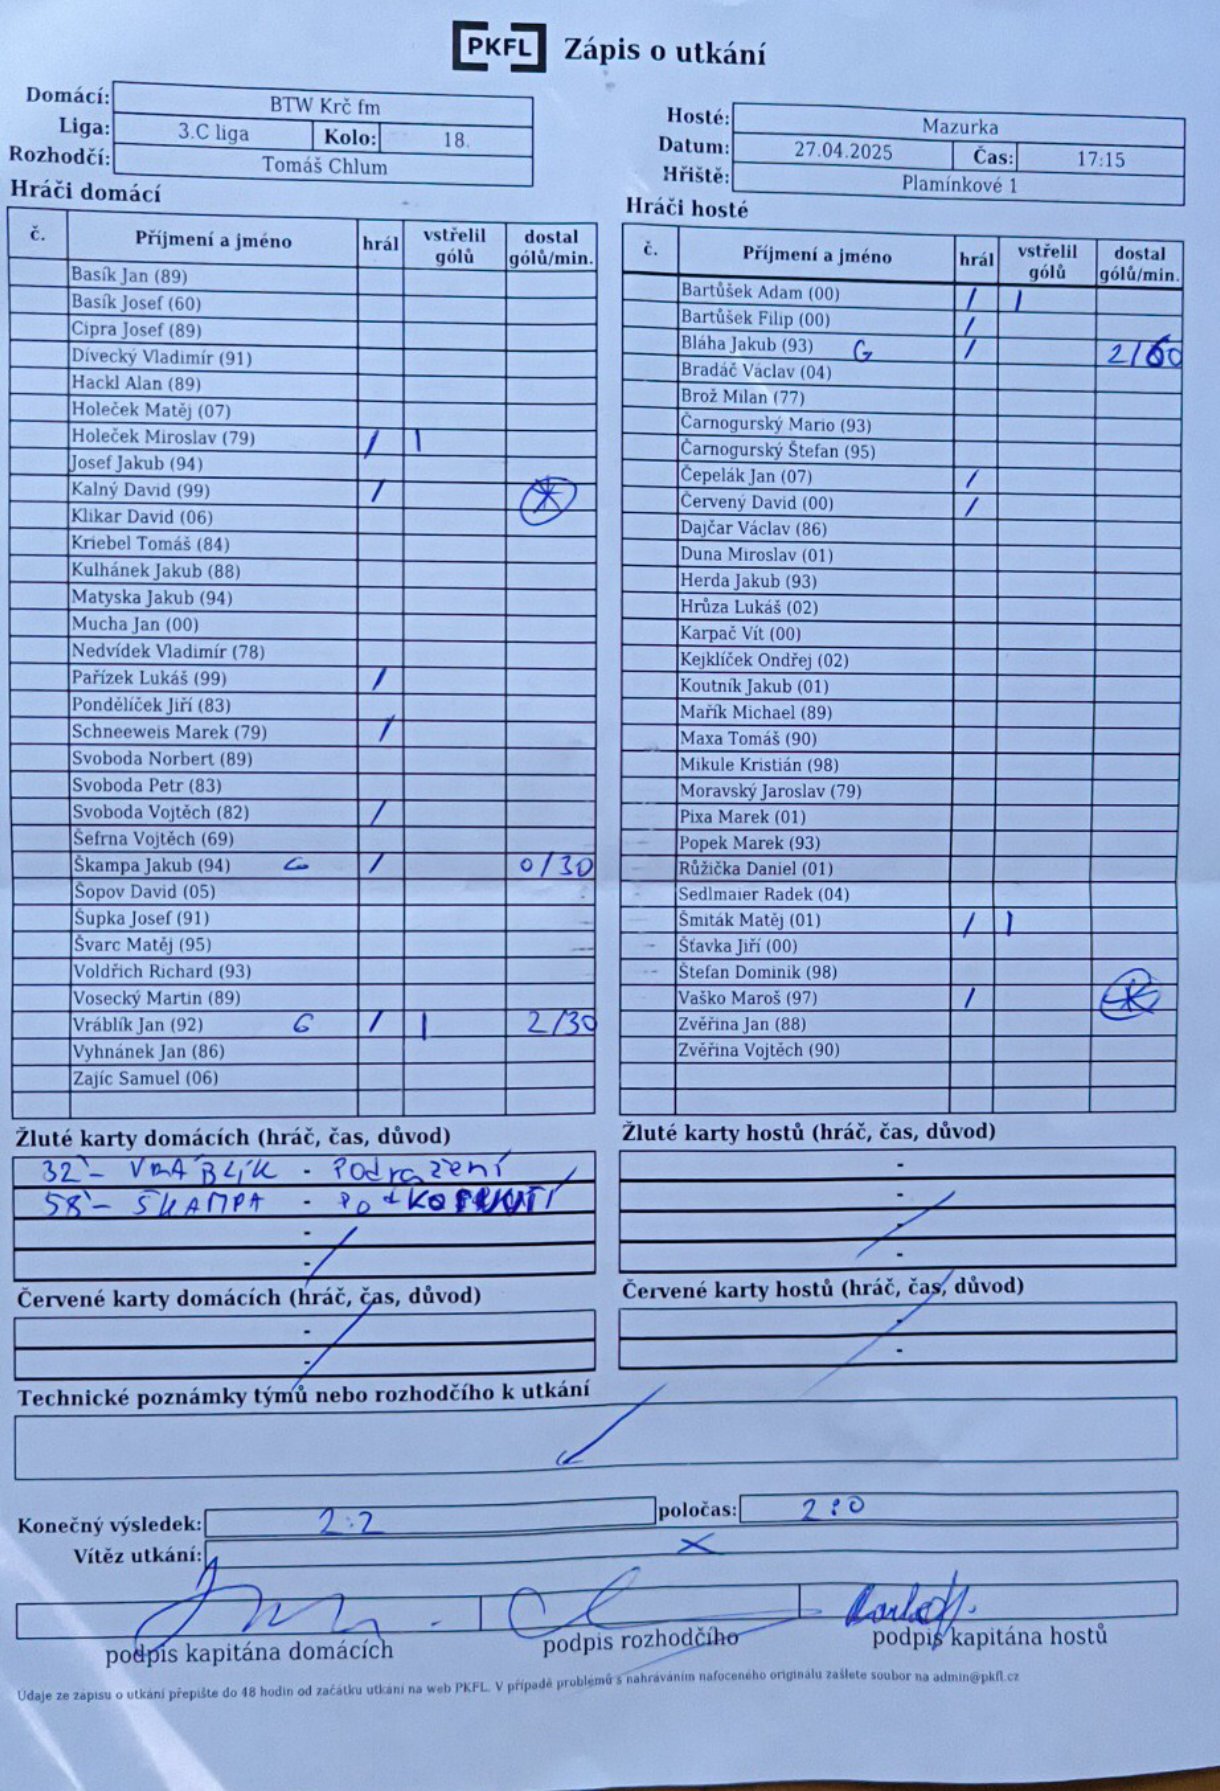 PKFL Zápis o utkání
Domácí: BTW Krč fm
Liga: 3.C liga Kolo: 18.
Rozhodčí: Tomáš Chlum
Hosté: Mazurka
Datum: 27.04.2025 Čas: 17:15
Hřiště: Plamínkové 1
Hráči domácí
č. Příjmení a jméno hrál vstřelil gólů dostal gólů/min.
Basík Jan (89)
Basík Josef (60)
Cipra Josef (89)
Dívecký Vladimír (91)
Hackl Alan (89)
Holeček Matěj (07)
Holeček Miroslav (79) / 1
Josef Jakub (94)
Kalný David (99) /
Klikar David (06)
Kriebel Tomáš (84)
Kulhánek Jakub (88)
Matyska Jakub (94)
Mucha Jan (00)
Nedvídek Vladimír (78)
Pařízek Lukáš (99) /
Pondělíček Jiří (83)
Schneeweis Marek (79) /
Svoboda Norbert (89)
Svoboda Petr (83)
Svoboda Vojtěch (82) /
Šefrna Vojtěch (69)
Škampa Jakub (94) G / 0/30
Šopov David (05)
Šupka Josef (91)
Švarc Matěj (95)
Voldřich Richard (93)
Vosecký Martin (89)
Vráblík Jan (92) G / 1 2/30
Vyhnánek Jan (86)
Zajíc Samuel (06)
Hráči hosté
č. Příjmení a jméno hrál vstřelil gólů dostal gólů/min.
Bartůšek Adam (00) / 1
Bartůšek Filip (00) /
Bláha Jakub (93) G / 2/60
Bradáč Václav (04)
Brož Milan (77)
Čarnogurský Mario (93)
Čarnogurský Štefan (95)
Čepelák Jan (07) /
Červený David (00) /
Dajčar Václav (86)
Duna Miroslav (01)
Herda Jakub (93)
Hrůza Lukáš (02)
Karpač Vít (00)
Kejklíček Ondřej (02)
Koutník Jakub (01)
Mařík Michael (89)
Maxa Tomáš (90)
Mikule Kristián (98)
Moravský Jaroslav (79)
Pixa Marek (01)
Popek Marek (93)
Růžička Daniel (01)
Sedlmaier Radek (04)
Šmiták Matěj (01) / 1
Šťavka Jiří (00)
Štefan Dominik (98)
Vaško Maroš (97) /
Zvěřina Jan (88)
Zvěřina Vojtěch (90)
Žluté karty domácích (hráč, čas, důvod)
32' - VRÁBLÍK - Podražení
58' - ŠKAMPA -
-
-
Žluté karty hostů (hráč, čas, důvod)
-
-
-
-
Červené karty domácích (hráč, čas, důvod)
-
-
Červené karty hostů (hráč, čas, důvod)
-
-
Technické poznámky týmů nebo rozhodčího k utkání
Konečný výsledek: 2:2 poločas: 2:0
Vítěz utkání: X
podpis kapitána domácích podpis rozhodčího podpis kapitána hostů
Údaje ze zápisu o utkání přepište do 48 hodin od začátku utkání na web PKFL. V případě problémů s nahráváním nafoceného originálu zašlete soubor na admin@pkfl.cz